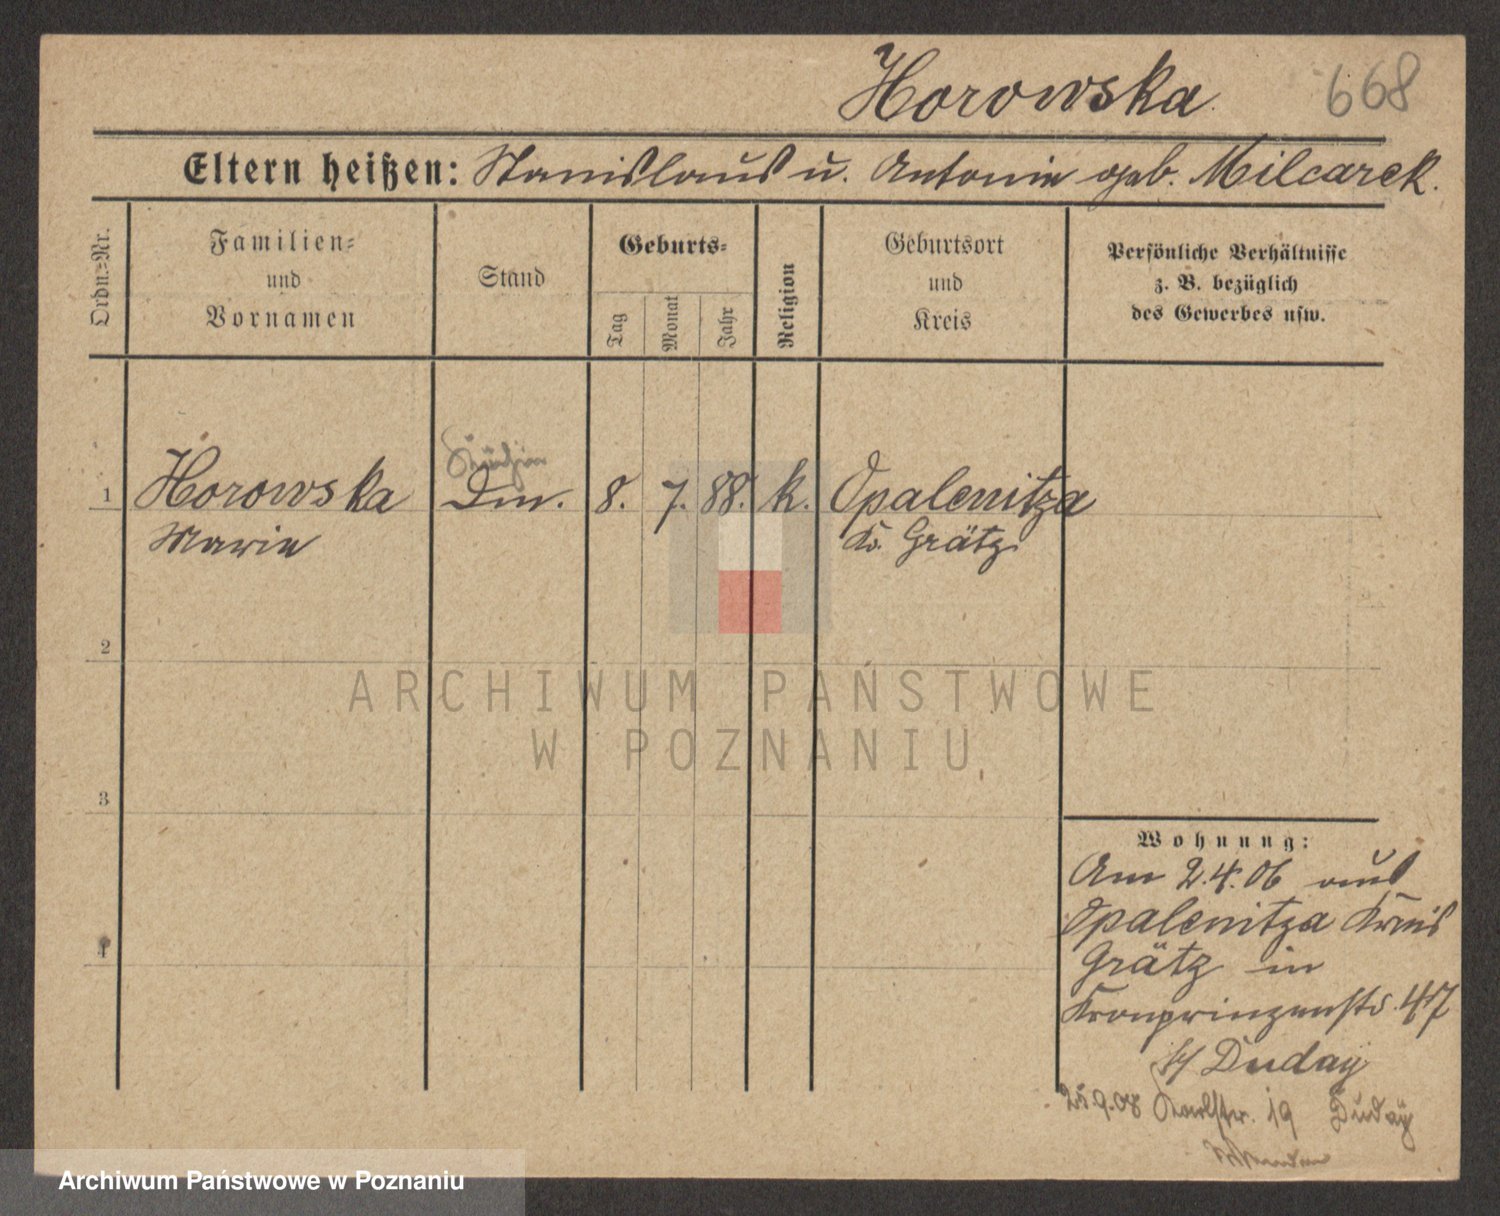 Horowska 668
Eltern heißen: Stanislaus u. Antonie geb. Milcarek.
Ordn.=Nr.
Familien=
und
Vornamen
Stand
Geburts=
Tag
Monat
Jahr
Religion
Geburtsort
und
Kreis
Persönliche Verhältnisse
z. B. bezüglich
des Gewerbes usw.
Köchin
1 Horowska Dm. 8. 7. 88. k. Opalenitza
Marie Kr. Grätz.
2
ARCHIWUM PAŃSTWOWE
W POZNANIU
3
Wohnung:
Am 2.4.06 aus
Opalenitza Kreis
4
Grätz in
Kronprinzenstr. 47
b/ Duday
25.9.08 Karlstr. 19 Duday
Archiwum Państwowe w Poznaniu